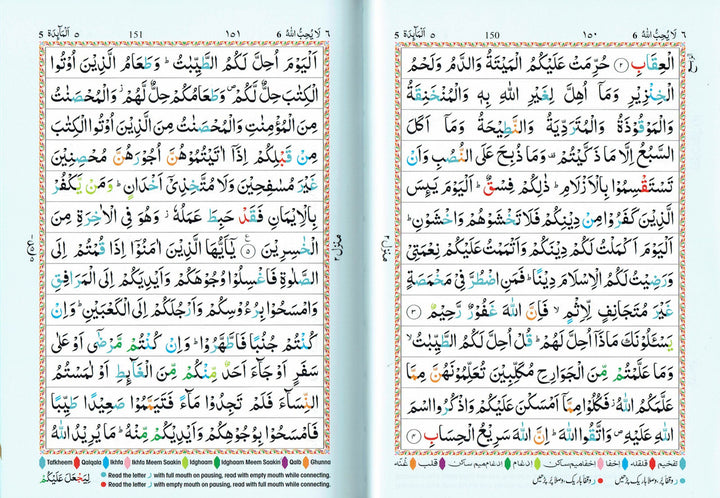 ٦ لَا يُحِبُّ اللّٰهُ 6 ١٥٠ 150 اَلْمَآئِدَة ٥ 5
الْعِقَابِ ﴿٢﴾ حُرِّمَتْ عَلَيْكُمُ الْمَيْتَةُ وَالدَّمُ وَلَحْمُ
الْخِنْزِيْرِ وَمَاۤ اُهِلَّ لِغَيْرِ اللّٰهِ بِهٖ وَالْمُنْخَنِقَةُ
وَالْمَوْقُوْذَةُ وَالْمُتَرَدِّيَةُ وَالنَّطِيْحَةُ وَمَاۤ اَكَلَ
السَّبُعُ اِلَّا مَا ذَكَّيْتُمْ ۫ وَمَا ذُبِحَ عَلَى النُّصُبِ وَاَنْ
تَسْتَقْسِمُوْا بِالْاَزْلَامِ ؕ ذٰلِكُمْ فِسْقٌ ؕ اَلْيَوْمَ يَئِسَ
الَّذِيْنَ كَفَرُوْا مِنْ دِيْنِكُمْ فَلَا تَخْشَوْهُمْ وَاخْشَوْنِ ؕ
اَلْيَوْمَ اَكْمَلْتُ لَكُمْ دِيْنَكُمْ وَاَتْمَمْتُ عَلَيْكُمْ نِعْمَتِيْ
وَرَضِيْتُ لَكُمُ الْاِسْلَامَ دِيْنًا ؕ فَمَنِ اضْطُرَّ فِيْ مَخْمَصَةٍ
غَيْرَ مُتَجَانِفٍ لِّاِثْمٍ ۙ فَاِنَّ اللّٰهَ غَفُوْرٌ رَّحِيْمٌ ﴿٣﴾
يَسْـَٔلُوْنَكَ مَاذَاۤ اُحِلَّ لَهُمْ ؕ قُلْ اُحِلَّ لَكُمُ الطَّيِّبٰتُ ۙ
وَمَا عَلَّمْتُمْ مِّنَ الْجَوَارِحِ مُكَلِّبِيْنَ تُعَلِّمُوْنَهُنَّ مِمَّا
عَلَّمَكُمُ اللّٰهُ ؗ فَكُلُوْا مِمَّاۤ اَمْسَكْنَ عَلَيْكُمْ وَاذْكُرُوا اسْمَ
اللّٰهِ عَلَيْهِ ۪ وَاتَّقُوا اللّٰهَ ؕ اِنَّ اللّٰهَ سَرِيْعُ الْحِسَابِ ﴿٤﴾
منزل ٢
تفخیم قلقله اخفا اخفامیم ساکن ادغام ادغام میم ساکن قلب غنّه
٦ لَا يُحِبُّ اللّٰهُ 6 ١٥١ 151 اَلْمَآئِدَة ٥ 5
اَلْيَوْمَ اُحِلَّ لَكُمُ الطَّيِّبٰتُ ؕ وَطَعَامُ الَّذِيْنَ اُوْتُوا
الْكِتٰبَ حِلٌّ لَّكُمْ ۪ وَطَعَامُكُمْ حِلٌّ لَّهُمْ ؗ وَالْمُحْصَنٰتُ
مِنَ الْمُؤْمِنٰتِ وَالْمُحْصَنٰتُ مِنَ الَّذِيْنَ اُوْتُوا الْكِتٰبَ
مِنْ قَبْلِكُمْ اِذَاۤ اٰتَيْتُمُوْهُنَّ اُجُوْرَهُنَّ مُحْصِنِيْنَ
غَيْرَ مُسٰفِحِيْنَ وَلَا مُتَّخِذِيْۤ اَخْدَانٍ ؕ وَمَنْ يَّكْفُرْ
بِالْاِيْمَانِ فَقَدْ حَبِطَ عَمَلُهٗ ؗ وَهُوَ فِي الْاٰخِرَةِ مِنَ
الْخٰسِرِيْنَ ﴿٥﴾ يٰۤاَيُّهَا الَّذِيْنَ اٰمَنُوْۤا اِذَا قُمْتُمْ اِلَى
الصَّلٰوةِ فَاغْسِلُوْا وُجُوْهَكُمْ وَاَيْدِيَكُمْ اِلَى الْمَرَافِقِ
وَامْسَحُوْا بِرُءُوْسِكُمْ وَاَرْجُلَكُمْ اِلَى الْكَعْبَيْنِ ؕ وَاِنْ
كُنْتُمْ جُنُبًا فَاطَّهَّرُوْا ؕ وَاِنْ كُنْتُمْ مَّرْضٰۤى اَوْ عَلٰى
سَفَرٍ اَوْ جَآءَ اَحَدٌ مِّنْكُمْ مِّنَ الْغَآئِطِ اَوْ لٰمَسْتُمُ
النِّسَآءَ فَلَمْ تَجِدُوْا مَآءً فَتَيَمَّمُوْا صَعِيْدًا طَيِّبًا
فَامْسَحُوْا بِوُجُوْهِكُمْ وَاَيْدِيْكُمْ مِّنْهُ ؕ مَا يُرِيْدُ اللّٰهُ
منزل ٢
Tafkheem Qalqala Ikhfa Ikhfa Meem Saakin Idghaam Idghaam Meem Saakin Qalb Ghunna
Read the letter ر with full mouth on pausing, read with empty mouth while connecting.
Read the letter ر with empty mouth on pausing, read with full mouth while connecting.
لِيَجْعَلَ عَلَيْكُمْ